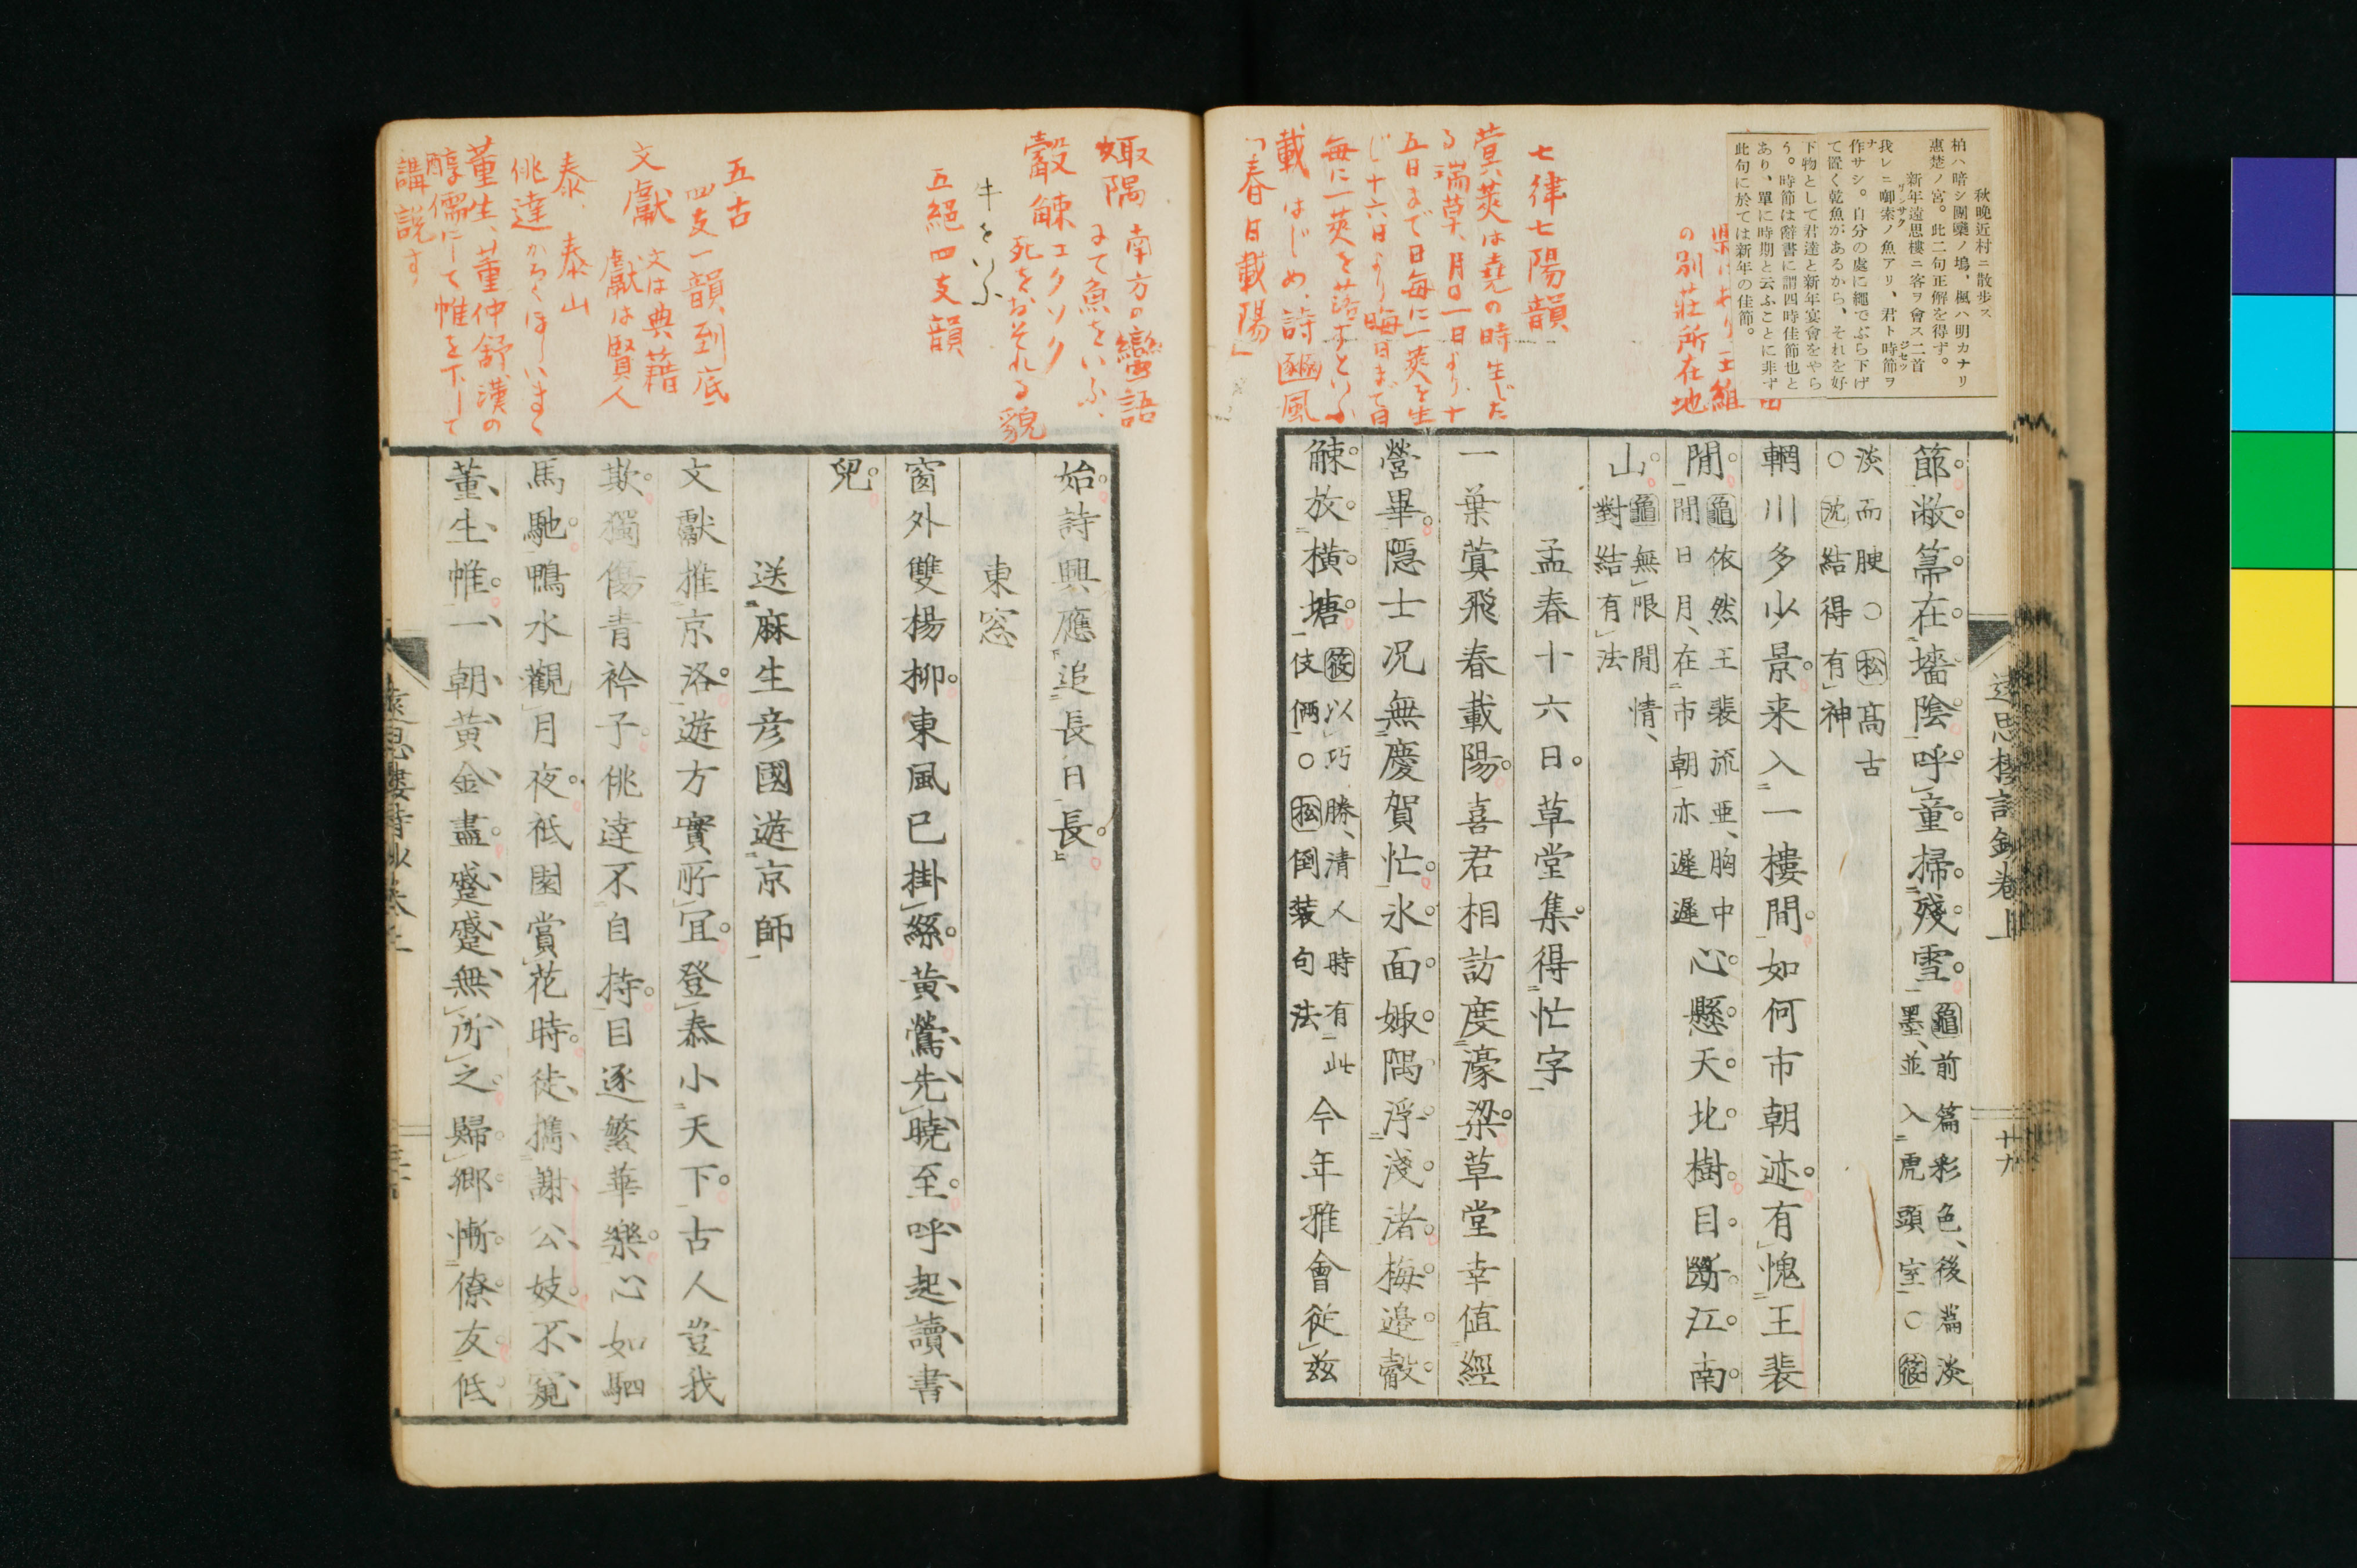 秋晩近村ニ散歩ス
柏ハ暗シ團欒ノ塢，楓ハ明カナリ
惠楚ノ宮。此二句正解を得ず。
新年遠思樓ニ客ヲ會ス二首
我レニ啣索ノ魚アリ、君ト時節ヲ
作サシ。自分の處に繩でぶら下げ
て置く乾魚があるから、それを好
下物として君達と新年宴會をやら
う。時節は辭書に謂四時佳節也と
あり、單に時期と云ふことに非ず
此句に於ては新年の佳節。
県にあり王維
の別荘所在地
七律七陽韻
蓂莢は堯の時生じた
る瑞草、月日一日より十
五日まで日毎に一莢を生
じ十六日より晦日まで日
毎に一莢を落すといふ
載はじめ、詩豳風
「春日載陽」
遠思樓詩鈔卷上
廿九
節敝帚在墻陰呼童掃殘雪龜前篇彩色後篇淡
墨並入虎頭室○筱
淡而腴○松高古
○沈結得有神
輞川多少景来入一樓間如何市朝迹有愧王裴
閒龜依然王裴流亜胸中
閒日月在市朝亦遲遲心懸天北樹目斷江南
山龜無限閒情
對結有法
孟春十六日草堂集得忙字
一葉蓂飛春載陽喜君相訪度濠梁草堂幸值經
營畢隱士况無慶賀忙氷面娵隅浮淺渚梅邉觳
觫放橫塘筱以巧勝清人時有此
伎倆○松倒裝句法今年雅會從茲
娵隅南方の蠻語
にて魚をいふ、
觳觫コクソク
死をおそれる貌
牛をいふ
五絕四支韻
五古
四支一韻到底
文獻文は典藉
獻は賢人
泰、泰山
佻達かろくほしいまゝ
董生、董仲舒、漢の
醇儒にして帷を下して
講説す
始詩興應追長日長
東窓
窗外雙楊柳東風已掛絲黃鶯先曉至呼起讀書
兒
送麻生彦國遊京師
文獻推京洛遊方實所宜登泰小天下古人豈我
欺獨傷青衿子佻達不自持目逐繁華樂心如駟
馬馳鴨水觀月夜祇園賞花時徒擕謝公妓不窺
董生帷一朝黃金盡蹙蹙無所之歸鄉慚僚友低